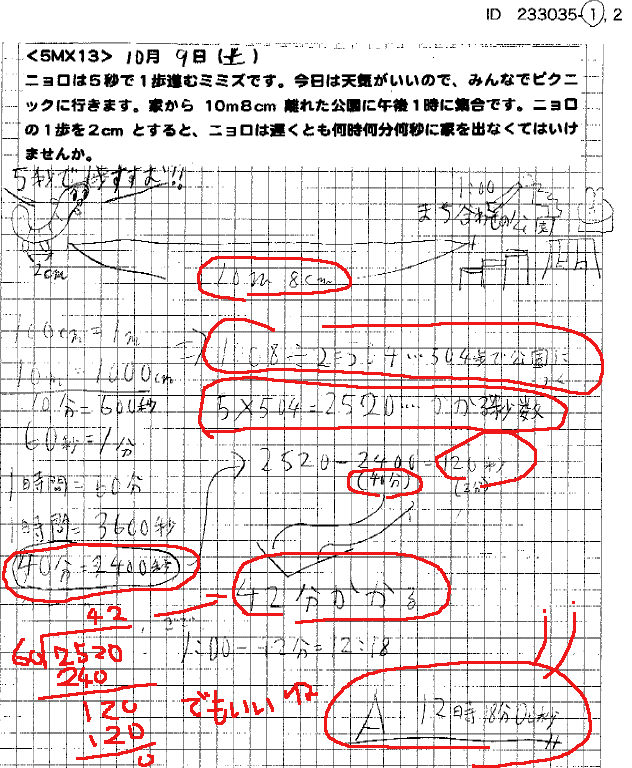 ID 233035-1, 2
<5MX13> 10月 9日 (土)
ニョロは5秒で1歩進むミミズです。今日は天気がいいので、みんなでピクニ
ックに行きます。家から 10m8cm 離れた公園に午後1時に集合です。ニョロ
の1歩を2cm とすると、ニョロは遅くとも何時何分何秒に家を出なくてはいけ
ませんか。
5秒で1歩すすむ!!!
1:00
まち合わせの公園
2cm
10m 8cm
100cm=1m
1008÷2=504…504歩で公園に
10m=1000cm
10分=600秒
5×504=2520…かかる秒数
60秒=1分
2520-2400=120秒
(40分)
(2分)
1時間=60分
1時間=3600秒
40分=2400秒
42分かかる
42
60 2520
240
120
120
0
1:00-42分=12:18
でもいいね
A 12時18分0秒